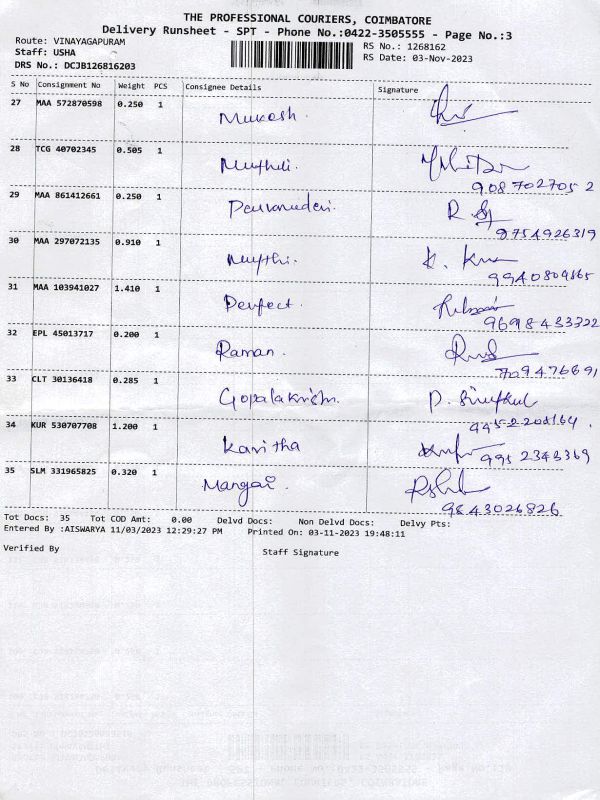 THE PROFESSIONAL COURIERS, COIMBATORE
Delivery Runsheet - SPT - Phone No.:0422-3505555 - Page No.:3
Route: VINAYAGAPURAM
RS No.: 1268162
Staff: USHA
RS Date: 03-Nov-2023
DRS No.: DCJB126816203
S No Consignment No Weight PCS Consignee Details Signature
27 MAA 572870598 0.250 1 Mukesh.
28 TCG 40702345 0.505 1
9087027052
29 MAA 861412661 0.250 1
9754926319
30 MAA 297072135 0.910 1
9940809165
31 MAA 103941027 1.410 1 Perfect.
9698433722
32 EPL 45013717 0.200 1 Raman.
709476691
33 CLT 30136418 0.285 1 Gopalakrish.
34 KUR 530707708 1.200 1 Kavitha
9952343369
35 SLM 331965825 0.320 1 Mangai.
9843026826
Tot Docs: 35 Tot COD Amt: 0.00 Delvd Docs: Non Delvd Docs: Delvy Pts:
Entered By :AISWARYA 11/03/2023 12:29:27 PM Printed On: 03-11-2023 19:48:11
Verified By Staff Signature